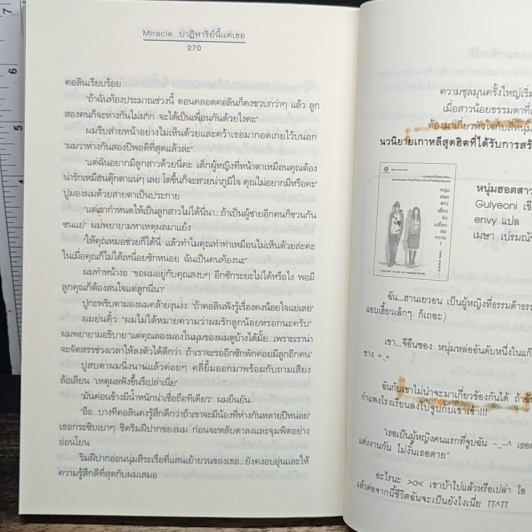 Miracle...ปาฏิหาริย์นี้แด่เธอ
270
คอลินเรียบร้อย
"ถ้าฉันท้องประมาณช่วงนี้ ตอนคลอดคอลินก็คงขวบกว่าๆ แล้ว ลูก
สองคนก็จะห่างกันไม่มาก จะได้เป็นเพื่อนกันด้วยไงคะ"
ผมรีบส่ายหน้าอย่างไม่เห็นด้วยและคว้าเธอมากอดเกยไว้บนอก
"ผมว่าห่างกันสองปีพอดีที่สุดแล้วล่ะ"
"แต่ฉันอยากมีลูกสาวด้วยนี่คะ เด็กผู้หญิงที่หน้าตาเหมือนคุณต้อง
น่ารักเหมือนตุ๊กตาแน่ๆ เลย โตขึ้นก็จะสวยน่าภูมิใจ คุณไม่อยากมีหรือคะ"
ปูมองผมด้วยสายตาเป็นประกาย
"แต่เรากำหนดให้เป็นลูกสาวไม่ได้นี่นา...ถ้าเป็นผู้ชายอีกคนก็ชวนกัน
ซนแย่" ผมพยายามหาเหตุผลมาแย้ง
"ให้คุณหมอช่วยก็ได้นี่ แล้วทำไมคุณทำท่าเหมือนไม่เห็นด้วยล่ะคะ
ในเมื่อคุณก็ไม่ได้เหนื่อยซักหน่อย ฉันเป็นคนท้องนะ"
ผมทำหน้างอ "ขอผมอยู่กับคุณสงบๆ อีกซักระยะไม่ได้หรือไง พอมี
ลูกคุณก็ต้องสนใจแต่ลูกนี่นา"
ปูกะพริบตามองผมคล้ายงุนงง "ถ้าคอลินฟังรู้เรื่องคงน้อยใจแย่เลย"
ผมย่นคิ้ว "ผมไม่ได้หมายความว่าผมรักลูกน้อยหรอกนะครับ"
ผมพยายามอธิบาย "แต่คุณลองมองในมุมของผมดูบ้างได้มั้ย...เพราะเราน่า
จะจัดสรรช่วงเวลาให้ลงตัวได้ดีกว่า ถ้าเราจะรออีกซักพักค่อยมีลูกอีกคน"
ปูสบตาผมนิ่งนานแล้วค่อยๆ คลี่ยิ้มออกมาพร้อมกับถามเสียง
ล้อเลียน "เหตุผลฟังขึ้นรึเปล่าเนี่ย"
"มันค่อนข้างมีน้ำหนักน่าเชื่อถือทีเดียว" ผมยืนยัน
"อือ...บางทีคอลินคงรู้สึกดีกว่าถ้าเขาจะมีน้องที่ห่างกันหลายปีหน่อย"
เธอกระซิบเบาๆ ชิดริมฝีปากของผม ก่อนจะหลับตาลงและจุมพิตอย่าง
อ่อนโยน
ริมฝีปากอ่อนนุ่มสีระเรื่อที่แสนเย้ายวนของเธอ...ยังคงอบอุ่นและให้
ความรู้สึกดีที่สุดกับผมเสมอ
ความชุลมุนครั้งใหญ่เริ่ม
เมื่อสาวน้อยธรรมดาที่
ต้องมาเกี่ยวหัวใจกับสี่หนุ่ม
นวนิยายเกาหลีสุดฮิตที่ได้รับการสร้
หนุ่มฮอตสาว
Guiyeoni เขี
envy แปล
เมษา เปรมณิ
ฉัน...ฮานเยวอน เป็นผู้หญิงที่ธรรมด๊าธรร
แอบเฮี้ยวเล็กๆ ก็เถอะ)
เขา...จีอึนซอง หนุ่มหล่ออันดับหนึ่งในแก๊
ราง ^_^
ฉันกับเขาไม่น่าจะมาเกี่ยวข้องกันได้ ถ้าฉั
กำแพงโรงเรียนลงไปจูบกับเขาเข้า!!!
"เธอเป็นผู้หญิงคนแรกที่จูบฉัน -_-^ เธอต้
แต่งงานกัน ไม่งั้นเธอตาย"
อะไรนะ >O< เขาบ้าไปแล้วหรือเปล่า โอ
แล้วต่อจากนี้ชีวิตฉันจะเป็นยังไงเนี่ย TT^TT